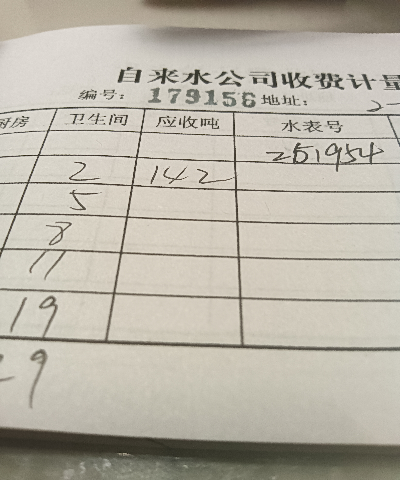 自来水公司收费计量
编号: 179156 地址: 2-
厨房 卫生间 应收吨 水表号
251954
2 142
5
8
11
19
29